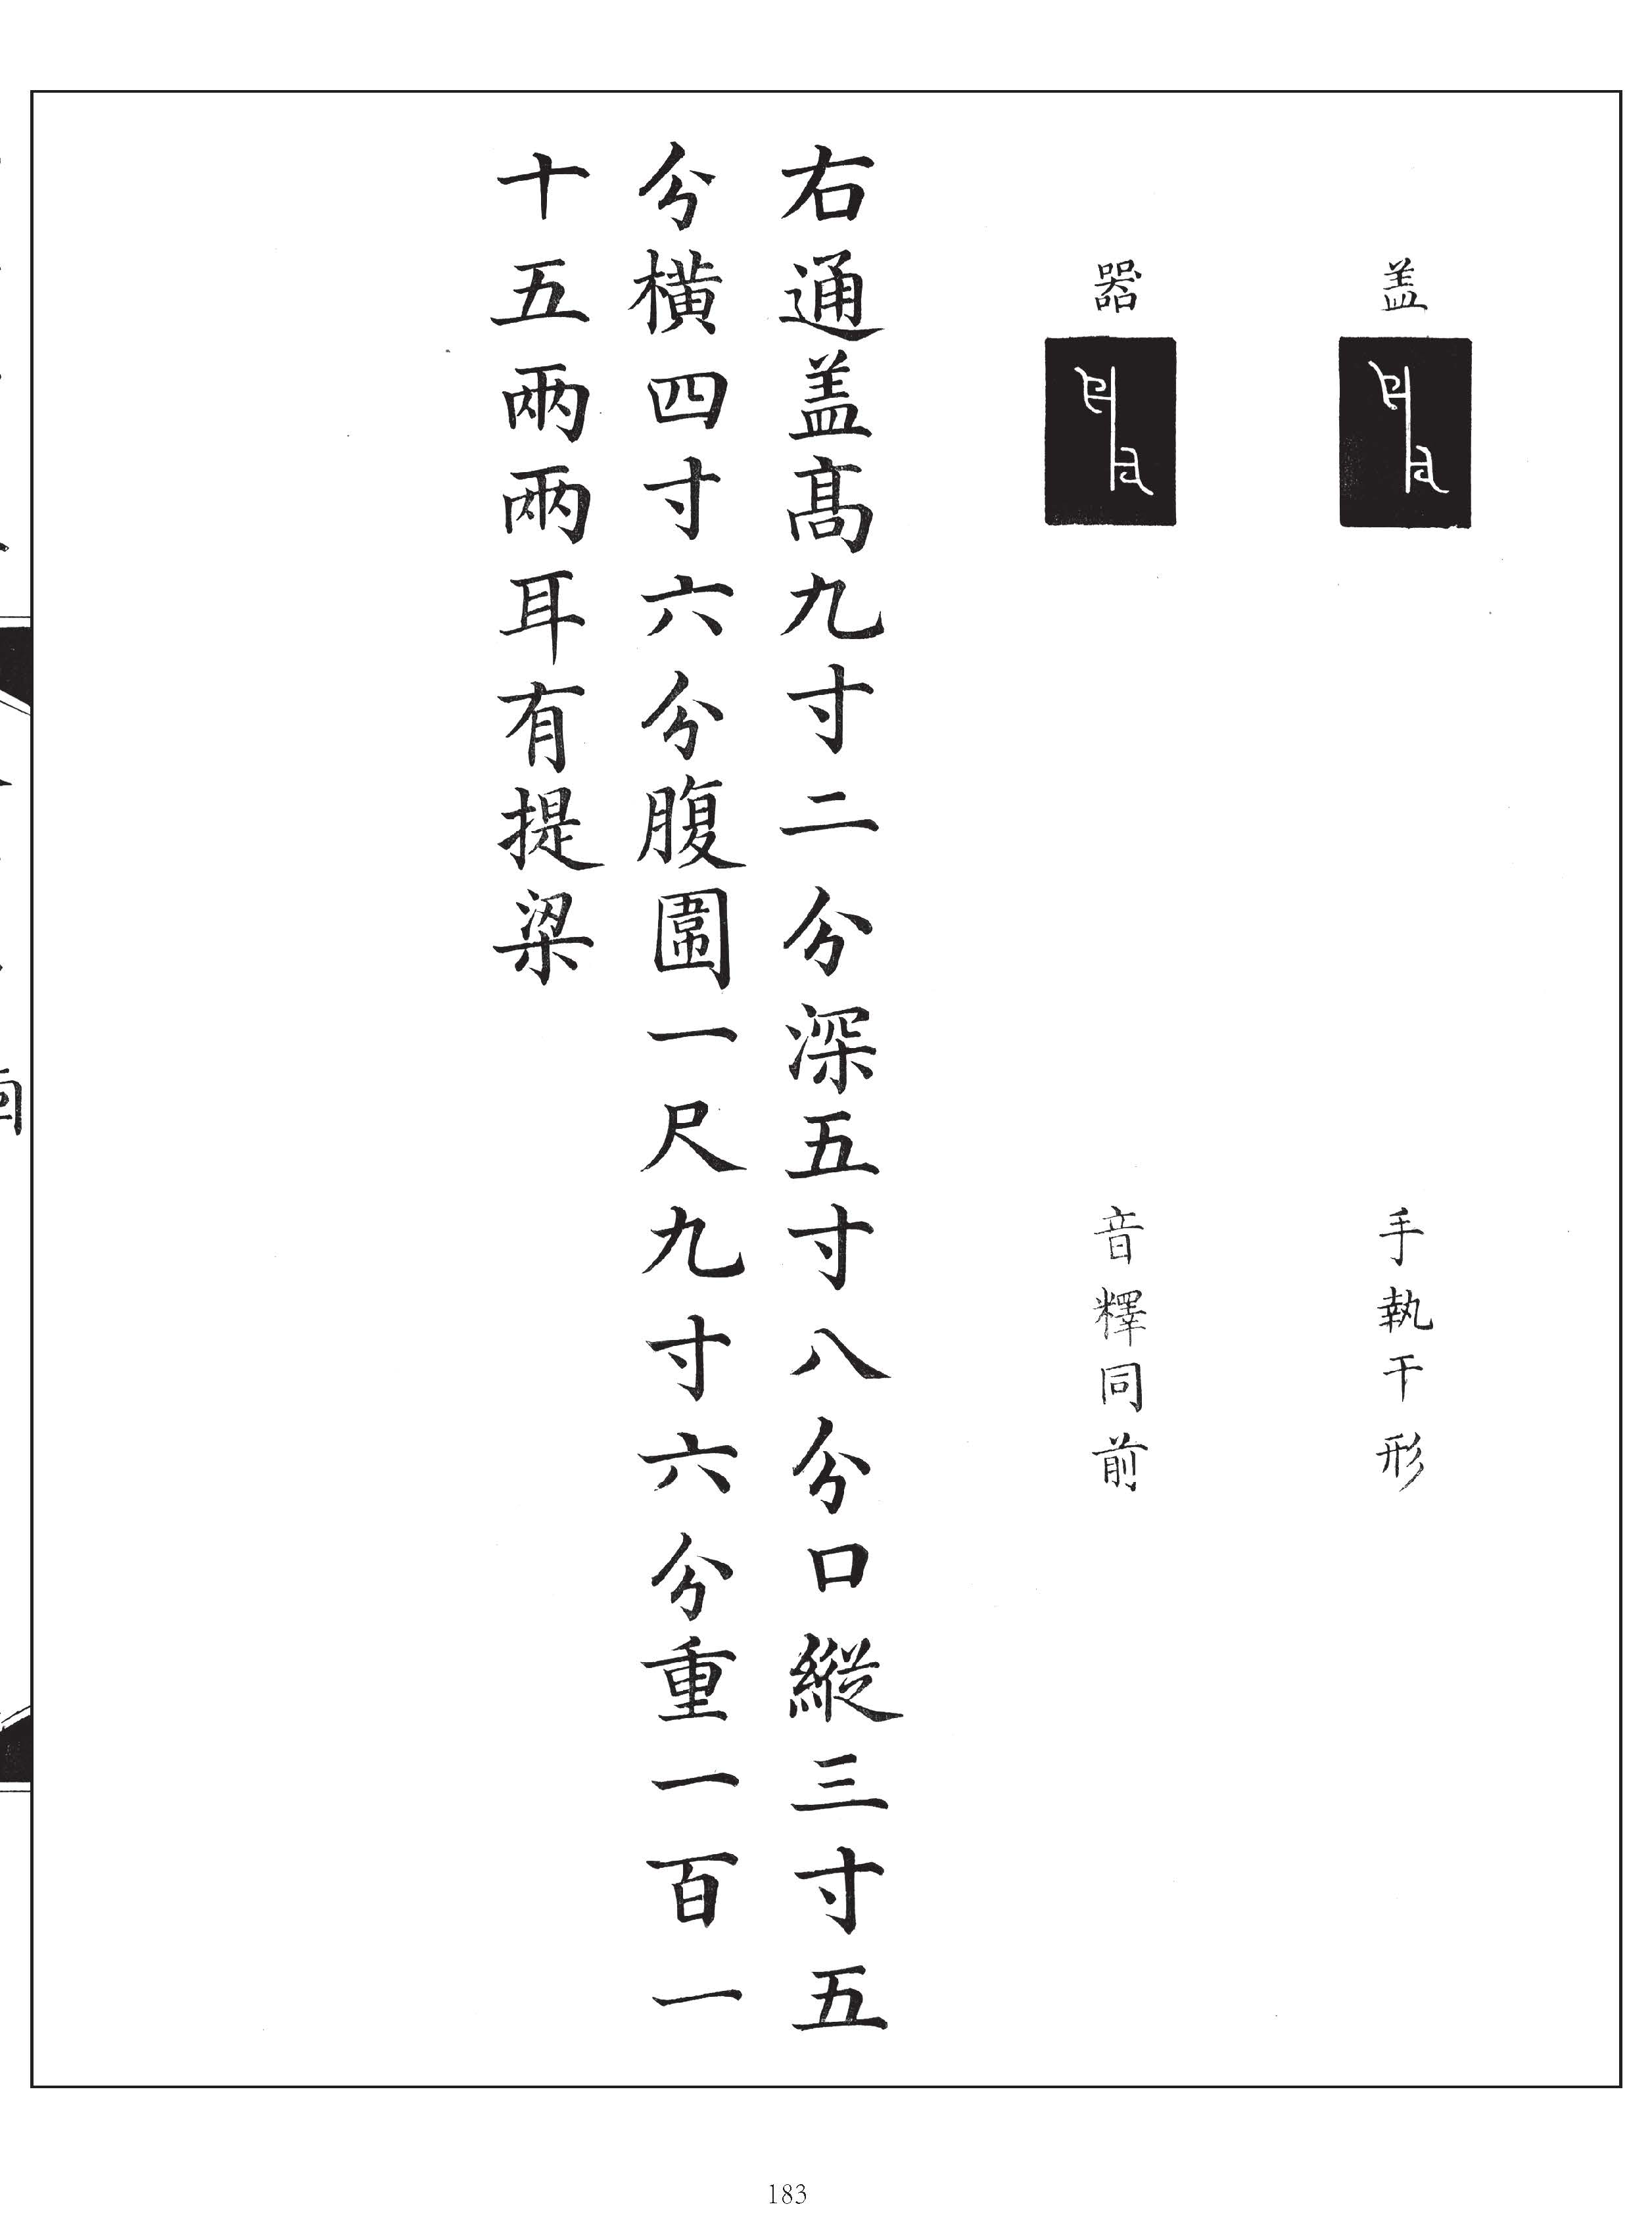 盖
手執干形
器
音釋同前
右通盖髙九寸二分深五寸八分口縱三寸五
分橫四寸六分腹圍一尺九寸六分重一百一
十五兩兩耳有提梁
183